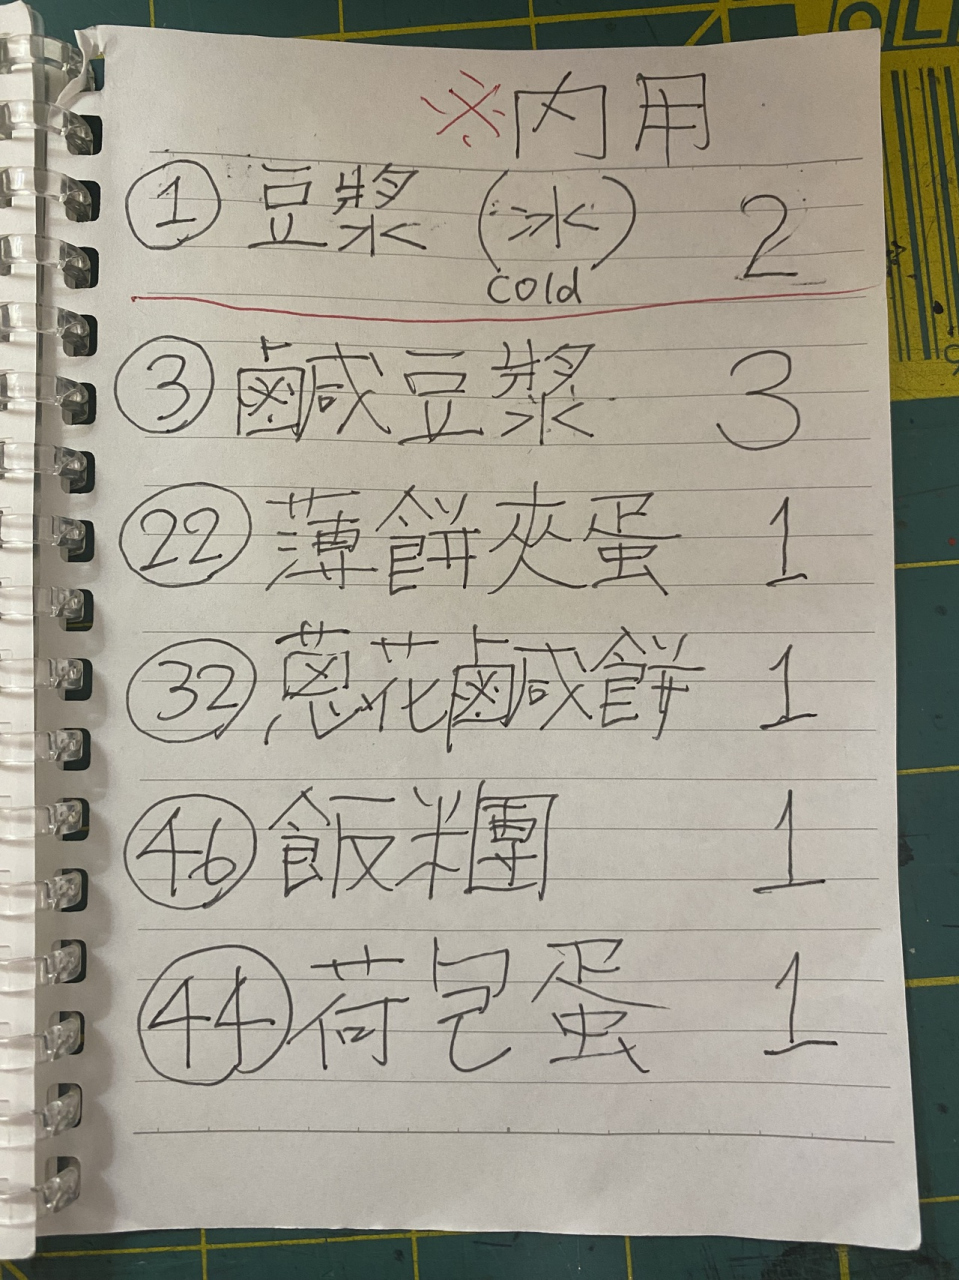 ※内用
① 豆漿 (冰) 2
cold
③ 鹹豆漿 3
㉒ 薄餅夾蛋 1
㉜ 蔥花鹹餅 1
㊻ 飯糰 1
㊹ 荷包蛋 1
OL